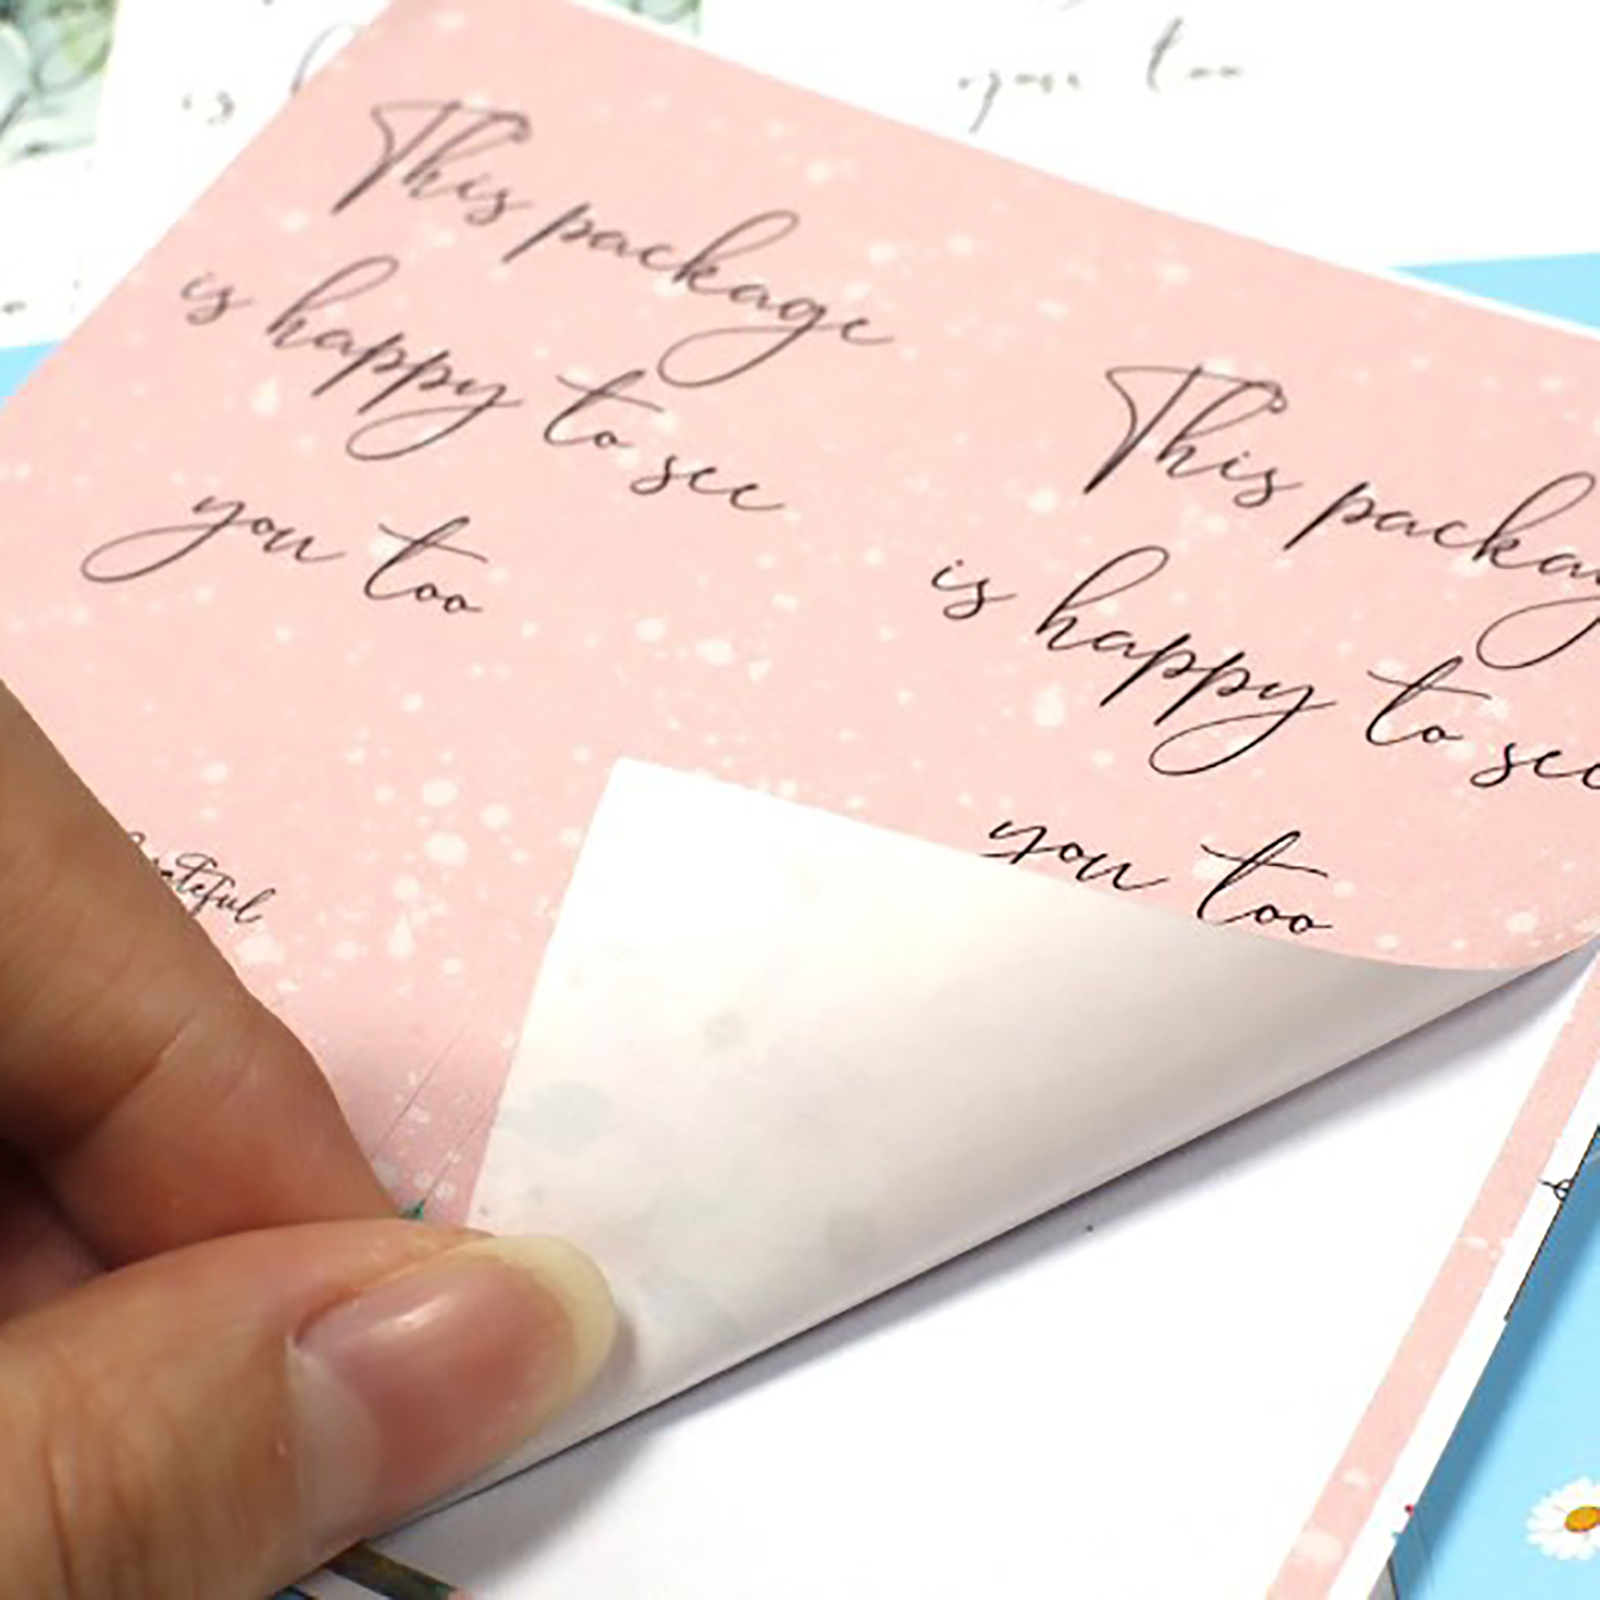 is
you too
This package
is happy to see
you too
This packag
is happy to see
you too
grateful